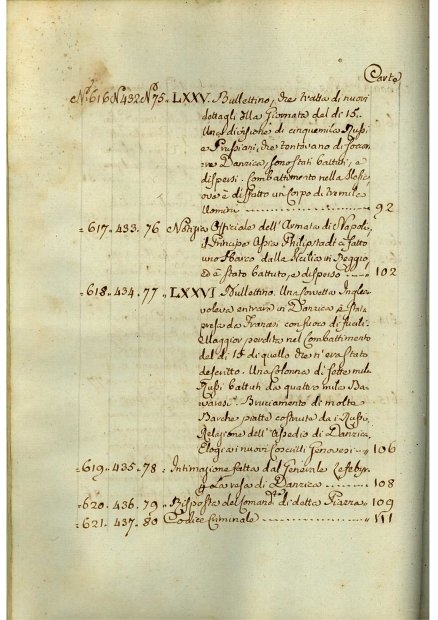 Carte
N.° 616 N. 432 N.° 75. LXXV. Bullettino, che tratta di nuovi
dettagli della Giornata del dì 15.
Una divisione di cinquemila Russi
e Prussiani, che tentavano di soccor-
rere Danzica, sono stati battuti, e
dispersi. Combattimento nella
ove è disfatto un Corpo di
Uomini 92
= 617 .. 433. 76 Notizia Officiale dell'Armata di Napoli,
il Principe Assia Philipstadt à fatto
uno sbarco dalla Sicilia in Reggio,
ed è stato battuto, e disperso 102
= 618 .. 434. .. 77 .. LXXVI Bullettino. Una Corvetta Inglese
voleva entrare in Danzica è stata
presa da Francesi con fuoco di fucili.
Maggior perdita nel Combattimento
del dì 15 di quello che n'era stato
descritto. Una Colonna di settemila
Russi battuti da quattro mila Ba-
varesi. Bruciamento di molte
Barche piatte costruite da i Russi.
Relazione dell'Assedio di Danzica.
Elogi a i nuovi Coscritti Genovesi 106
= 619 .. 435 .. 78 .. Intimazione fatta dal Generale Lefebvre
p. la resa di Danzica 108
= 620 .. 436. .. 79 .. Risposta del Comand.te di detta Piazza 109
= 621 .. 437. 80 Codice Criminale 111